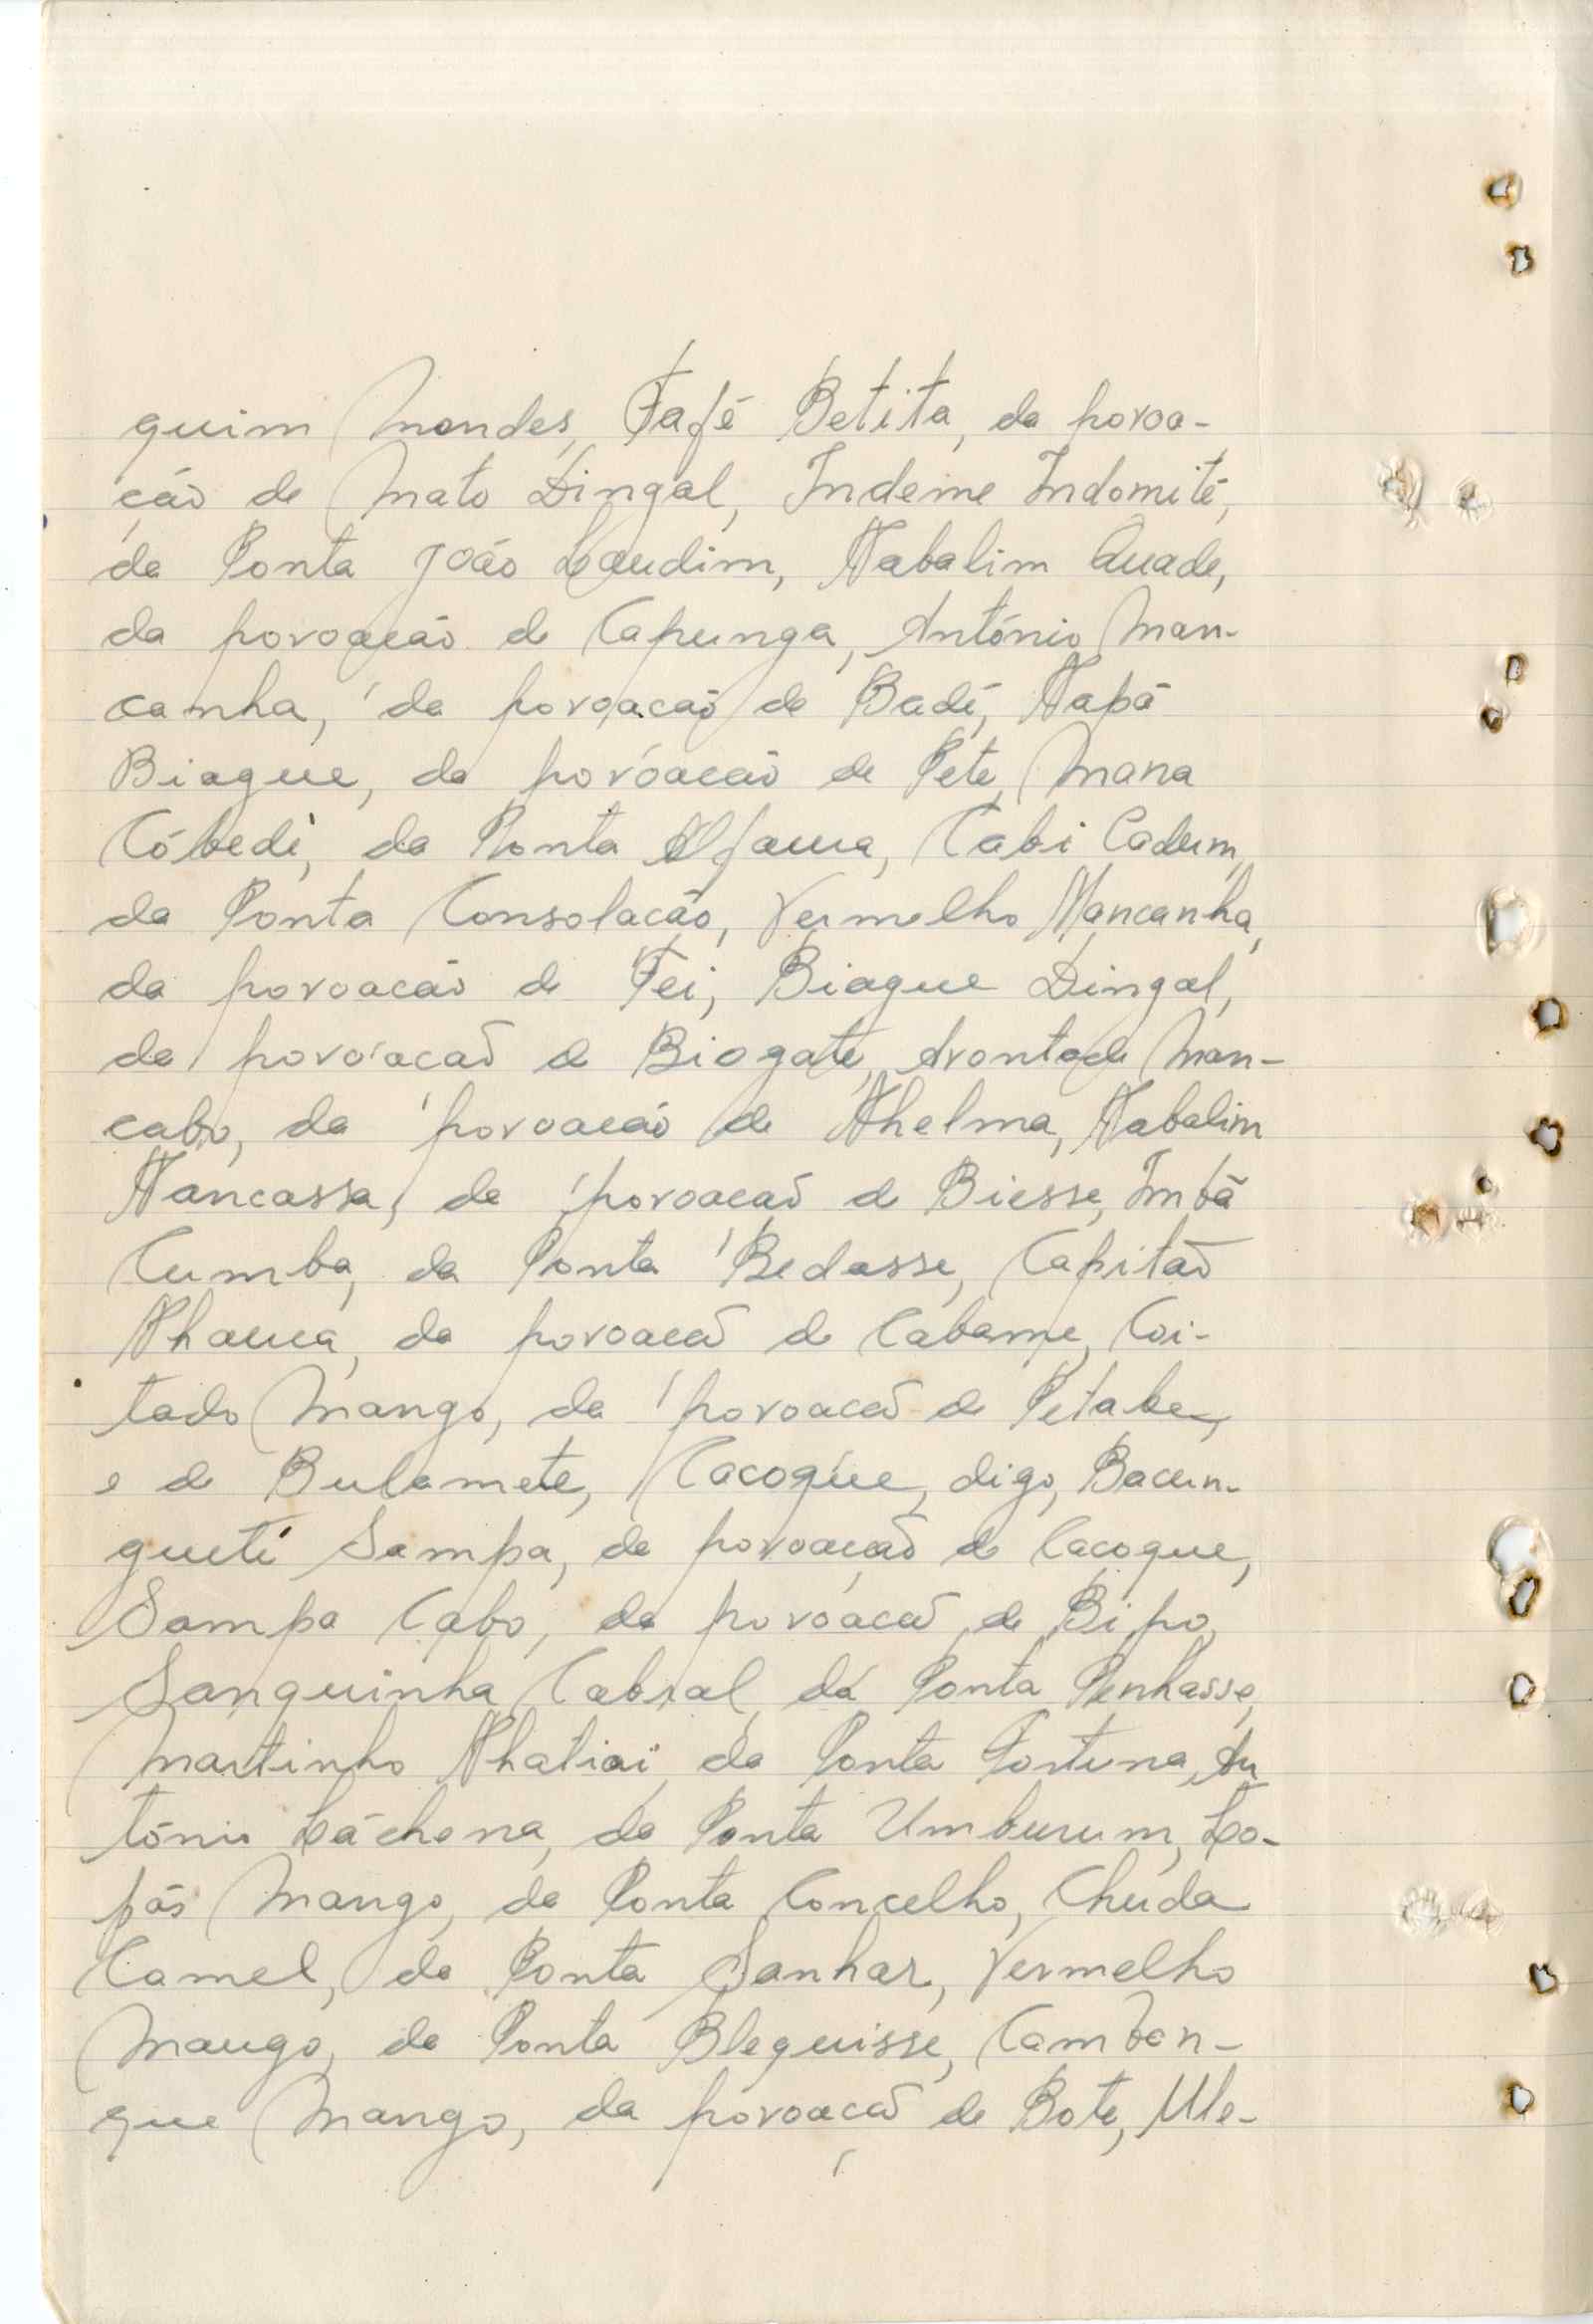 quim Mendes, Fafé Betita, da povoa-
ção de Mato Dingal, Indeme Indomité,
da Ponta João Landim, Nabalim Quade,
da povoação de Capunga, António Man-
canha, da povoação de Badé, Napá
Biague, da povoação de Pete, Mana
Cóbedi, da Ponta Alfama, Cabi Cadum,
da Ponta Consolação, Vermelho Mancanha,
da povoação de Fei, Biague Dingal,
da povoação de Biogate, Arontade Man-
cabo, da povoação de Nhelma, Nabalim
Nancassa, da povoação de Biesse, Imbã
Cumba, da Ponta Bedasse, Capitão
Nhaua, da povoação de Cabame, Coi-
tado Mango, da povoação de Petabe,
e de Bulamete, Cacogue, digo, Bacun-
gueté Sampa, da povoação de Cacogue,
Sampa Cabo, da povoação de Bipo,
Sanguinha Cabral, da Ponta Penhasse,
Martinho Nhatiai, da Ponta Fortuna, An
tónio Cáchena, da Ponta Umburum, Lo-
pás Mango, da Ponta Concelho, Chuda
Camel, da Ponta Sanhar, Vermelho
Mango, da Ponta Bleguisse, Camban-
que Mango, da povoação de Bote, Ule-